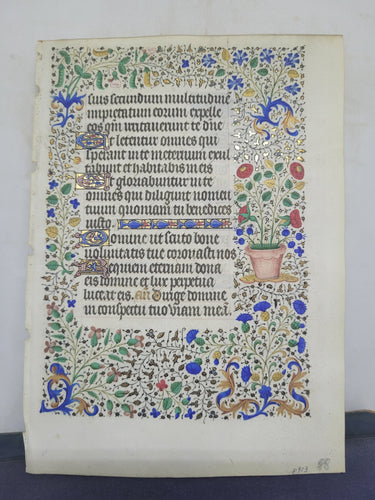 suis secundum multitudinē
impietatum eorum expelle
eos qm̄ irritauerunt te dn̄e
Et letentur omnes qui
sperant in te in eternum exul
tabunt et habitabis in eis
Et gloriabuntur in te
omnes qui diligunt nomen
tuum quoniam tu benedices
iusto.
Domine ut scuto bone
voluntatis tue coronasti nos
Requiem eternam dona
eis domine et lux perpetua
luceat eis. an̄ Dirige domine
in conspectu tuo viam mea.
88